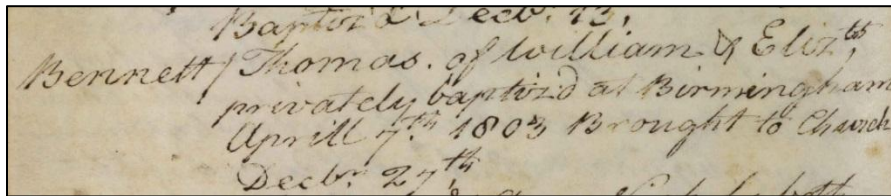 Baptiz'd Decbr. 13,
Bennett / Thomas. of William & Eliz.th
privately baptiz'd at Birmingham
Aprill 7th. 1803 Brought to Church
Decbr. 27th